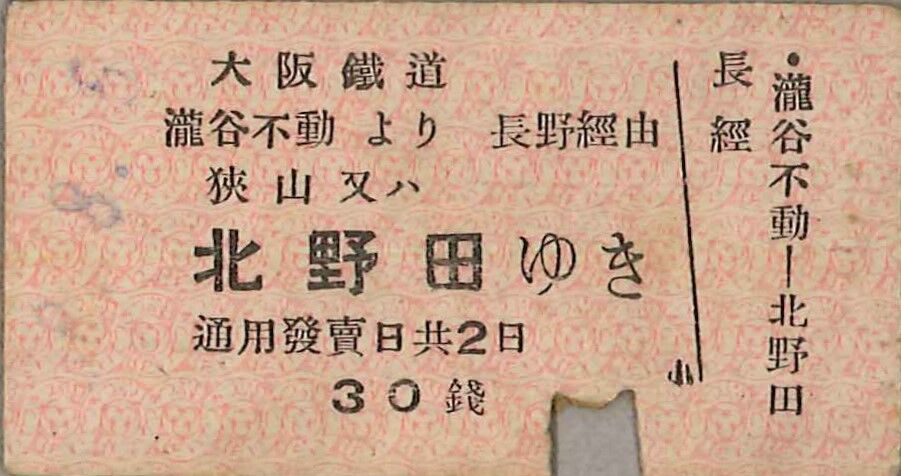 大阪鐵道
瀧谷不動 より 長野經由
狹山 又ハ
北野田ゆき
通用發賣日共2日
30錢
長經
・瀧谷不動―北野田
小